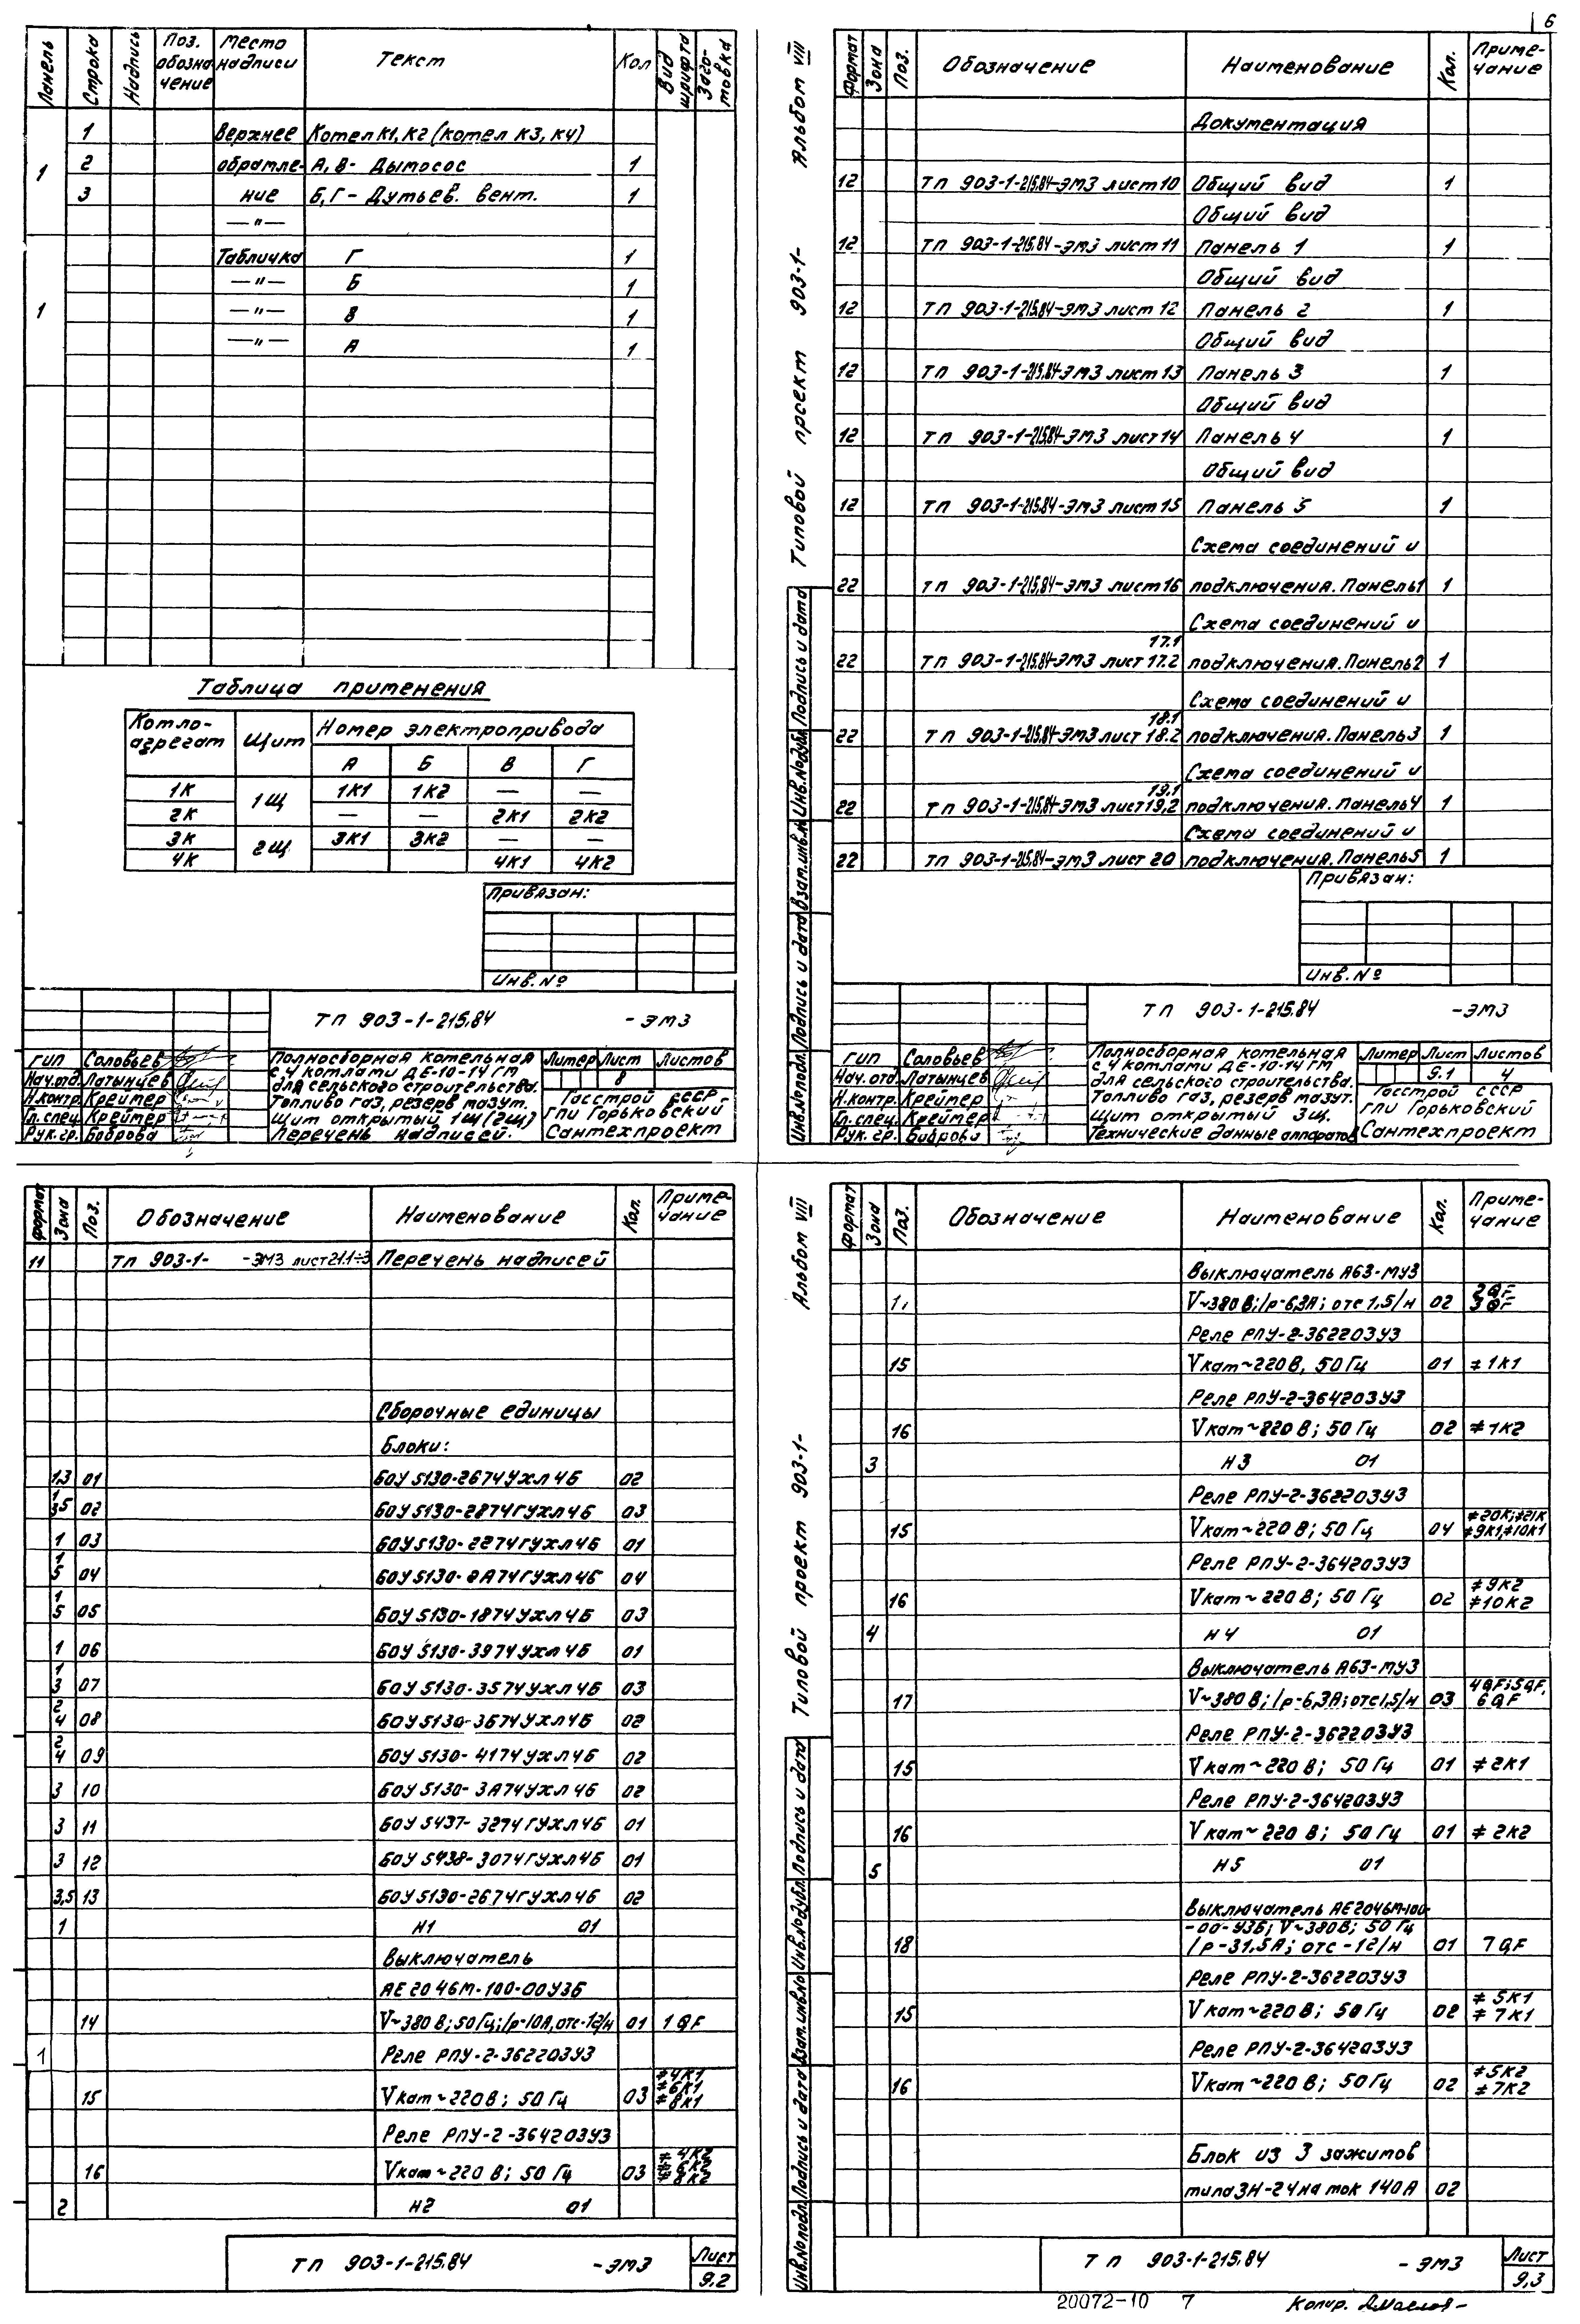 6
Панель Строка Надпись Поз. обозначение Место надписи Текст Кол Вид шрифта Заготовка
1 Верхнее Котел К1, К2 (котел К3, К4)
1 2 обрамле- А, В- Дымосос 1
3 ние Б, Г- Дутьев. вент. 1
—"—
Табличка Г 1
—"— Б 1
1 —"— В 1
—"— А 1
Таблица применения
Котлоагрегат Щит Номер электропривода
А Б В Г
1К 1Щ 1К1 1К2 — —
2К — — 2К1 2К2
3К 2Щ 3К1 3К2 — —
4К — — 4К1 4К2
Привязан:
Инв. №
ТП 903-1-215.84 -ЭМ3
ГИП Соловьев
Нач.отд. Латынцев
Н.контр. Крейтер
Гл.спец. Крейтер
Рук.гр. Боброва
Полносборная котельная
с 4 котлами ДЕ-10-14 ГМ
для сельского строительства.
Топливо газ, резерв мазут.
Щит открытый 1Щ (2Щ)
Перечень надписей.
Литер Лист Листов
8
Госстрой СССР
ГПИ Горьковский
Сантехпроект
Альбом VIII
Типовой проект 903-1-
Инв.№ подл. Подпись и дата Взам.инв.№ Инв.№ дубл. Подпись и дата
Формат Зона Поз. Обозначение Наименование Кол. Примечание
Документация
12 ТП 903-1-215.84-ЭМ3 лист 10 Общий вид 1
Общий вид
12 ТП 903-1-215.84-ЭМ3 лист 11 Панель 1 1
Общий вид
12 ТП 903-1-215.84-ЭМ3 лист 12 Панель 2 1
Общий вид
12 ТП 903-1-215.84-ЭМ3 лист 13 Панель 3 1
Общий вид
12 ТП 903-1-215.84-ЭМ3 лист 14 Панель 4 1
Общий вид
12 ТП 903-1-215.84-ЭМ3 лист 15 Панель 5 1
Схема соединений и
22 ТП 903-1-215.84-ЭМ3 лист 16 подключения. Панель 1 1
Схема соединений и
17.1
22 ТП 903-1-215.84-ЭМ3 лист 17.2 подключения. Панель 2 1
Схема соединений и
18.1
22 ТП 903-1-215.84-ЭМ3 лист 18.2 подключения. Панель 3 1
Схема соединений и
19.1
22 ТП 903-1-215.84-ЭМ3 лист 19.2 подключения. Панель 4 1
Схема соединений и
22 ТП 903-1-215.84-ЭМ3 лист 20 подключения. Панель 5 1
Привязан:
Инв. №
ТП 903-1-215.84 -ЭМ3
ГИП Соловьев
Нач.отд. Латынцев
Н.контр. Крейтер
Гл.спец. Крейтер
Рук.гр. Боброва
Полносборная котельная
с 4 котлами ДЕ-10-14 ГМ
для сельского строительства.
Топливо газ, резерв мазут.
Щит открытый 3щ.
Технические данные аппаратов
Литер Лист Листов
9.1 4
Госстрой СССР
ГПИ Горьковский
Сантехпроект
Формат Зона Поз. Обозначение Наименование Кол. Примечание
11 ТП 903-1- -ЭМ3 лист 21.1÷3 Перечень надписей
Сборочные единицы
Блоки:
1,3 01 БОУ 5130-2674УХЛ4Б 02
1 3,5 02 БОУ 5130-2874ГУХЛ4Б 03
1 03 БОУ 5130-2274ГУХЛ4Б 01
1 5 04 БОУ 5130-2А74ГУХЛ4Б 04
1 5 05 БОУ 5130-1874УХЛ4Б 03
1 06 БОУ 5130-3974УХЛ4Б 01
1 3 07 БОУ 5130-3574УХЛ4Б 03
2 4 08 БОУ 5130-3674УХЛ4Б 02
2 4 09 БОУ 5130-4174УХЛ4Б 02
3 10 БОУ 5130-3А74УХЛ4Б 02
3 11 БОУ 5437-3274ГУХЛ4Б 01
3 12 БОУ 5438-3074ГУХЛ4Б 01
3,5 13 БОУ 5130-2674ГУХЛ4Б 02
1 Н1 01
Выключатель
АЕ2046М-100-00У3Б
14 V~380 В; 50 Гц; Iр-10А, отс-12Iн 01 1QF
1 Реле РПУ-2-362203У3
15 Vкат~220 В; 50 Гц 03 ≠4К1 ≠6К1 ≠8К1
Реле РПУ-2-364203У3
16 Vкат~220 В; 50 Гц 03 ≠4К2 ≠6К2 ≠8К2
2 Н2 01
ТП 903-1-215.84 -ЭМ3 Лист 9.2
Альбом VIII
Типовой проект 903-1-
Инв.№ подл. Подпись и дата Взам.инв.№ Инв.№ дубл. Подпись и дата
Формат Зона Поз. Обозначение Наименование Кол. Примечание
Выключатель А63-МУ3
V~380 В; Iр-6,3А; отс 1,5Iн 02 2QF 3QF
Реле РПУ-2-362203У3
15 Vкат~220 В, 50 Гц 01 ≠1К1
Реле РПУ-2-364203У3
16 Vкат~220 В; 50 Гц 02 ≠1К2
3 Н3 01
Реле РПУ-2-362203У3
15 Vкат~220 В; 50 Гц 04 ≠20К; ≠21К ≠9К1, ≠10К1
Реле РПУ-2-364203У3
16 Vкат~220 В; 50 Гц 02 ≠9К2 ≠10К2
4 Н4 01
Выключатель А63-МУ3
17 V~380 В; Iр-6,3А; отс 1,5Iн 03 4QF; 5QF, 6QF
Реле РПУ-2-362203У3
15 Vкат~220 В; 50 Гц 01 ≠2К1
Реле РПУ-2-364203У3
16 Vкат~220 В; 50 Гц 01 ≠2К2
5 Н5 01
Выключатель АЕ2046М-100-
-00-У3Б; V~380В; 50 Гц
18 Iр-31,5А; отс-12Iн 01 7QF
Реле РПУ-2-362203У3
15 Vкат~220 В; 50 Гц 02 ≠5К1 ≠7К1
Реле РПУ-2-364203У3
16 Vкат~220 В; 50 Гц 02 ≠5К2 ≠7К2
Блок из 3 зажимов
типа ЗН-24 на ток 140А 02
ТП 903-1-215.84 -ЭМ3 Лист 9.3
20072-10 7 Копир.